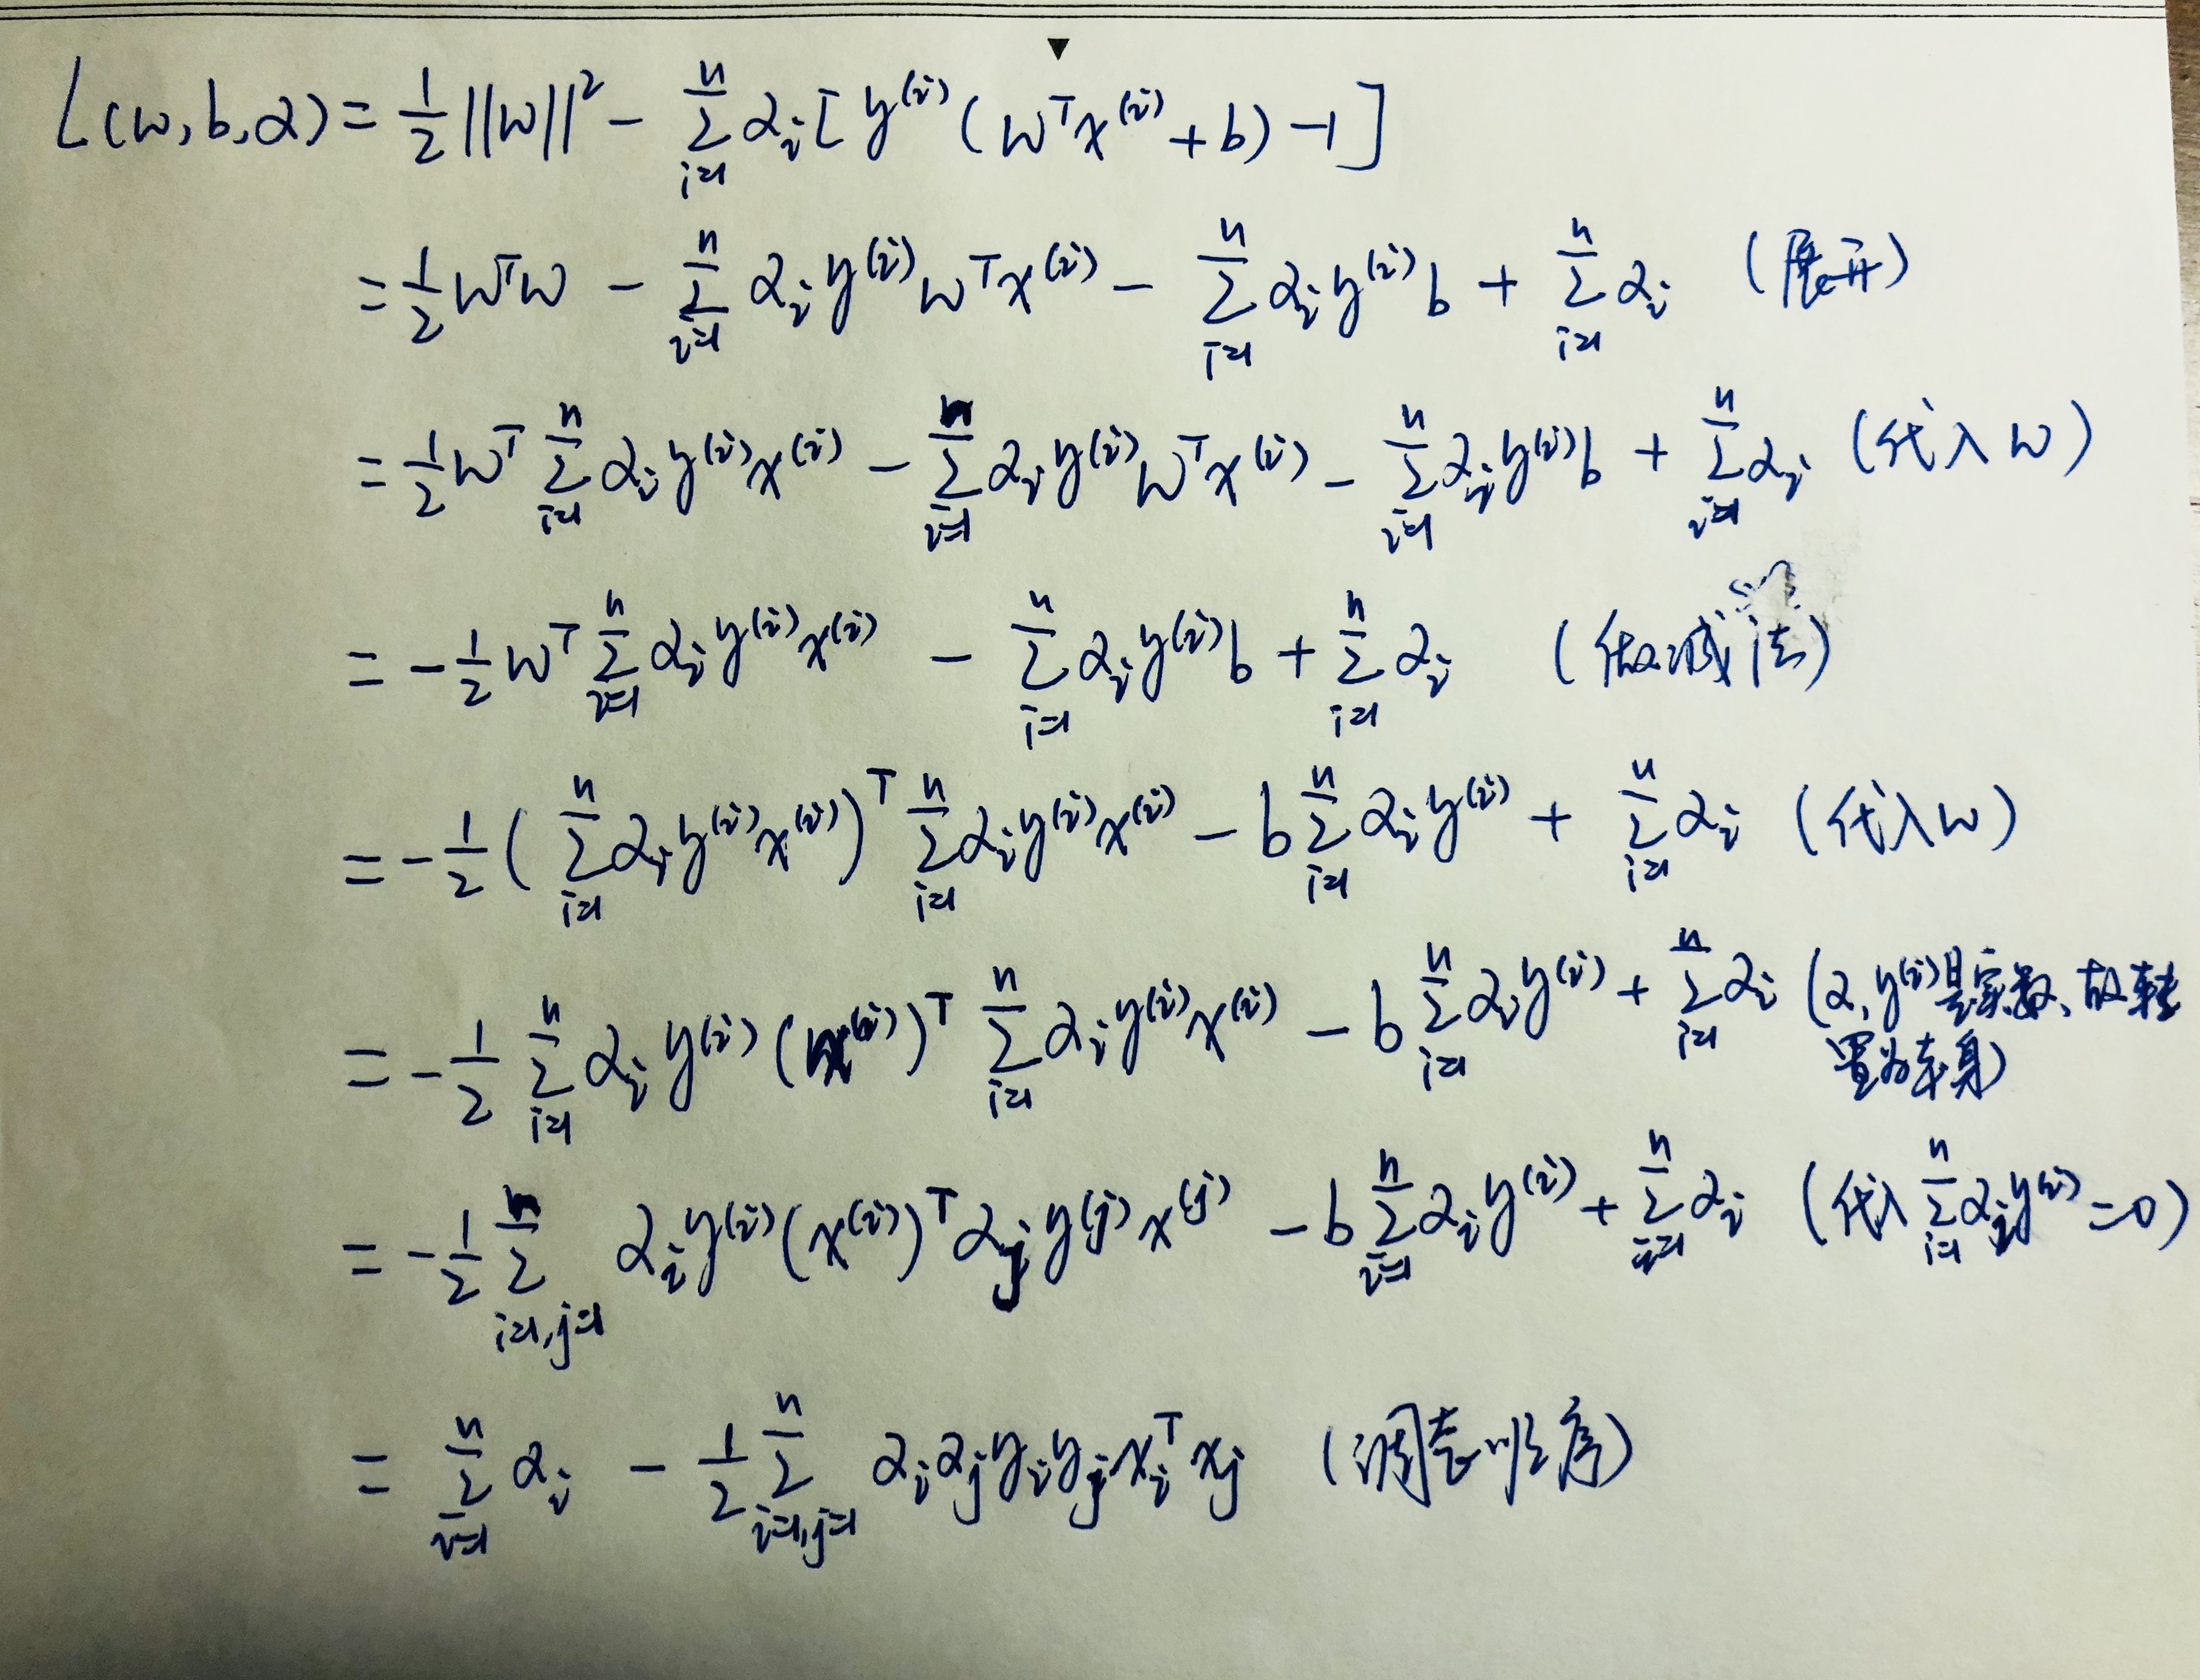 L(w,b,α) = 1/2 ||w||² - Σ_{i=1}^{n} α_i [ y^{(i)} ( w^T x^{(i)} + b ) - 1 ]
= 1/2 w^T w - Σ_{i=1}^{n} α_i y^{(i)} w^T x^{(i)} - Σ_{i=1}^{n} α_i y^{(i)} b + Σ_{i=1}^{n} α_i (展开)
= 1/2 w^T Σ_{i=1}^{n} α_i y^{(i)} x^{(i)} - Σ_{i=1}^{n} α_i y^{(i)} w^T x^{(i)} - Σ_{i=1}^{n} α_i y^{(i)} b + Σ_{i=1}^{n} α_i (代入 w)
= - 1/2 w^T Σ_{i=1}^{n} α_i y^{(i)} x^{(i)} - Σ_{i=1}^{n} α_i y^{(i)} b + Σ_{i=1}^{n} α_i (做减法)
= - 1/2 ( Σ_{i=1}^{n} α_i y^{(i)} x^{(i)} )^T Σ_{i=1}^{n} α_i y^{(i)} x^{(i)} - b Σ_{i=1}^{n} α_i y^{(i)} + Σ_{i=1}^{n} α_i (代入 w)
= - 1/2 Σ_{i=1}^{n} α_i y^{(i)} (x^{(i)})^T Σ_{i=1}^{n} α_i y^{(i)} x^{(i)} - b Σ_{i=1}^{n} α_i y^{(i)} + Σ_{i=1}^{n} α_i (α, y^{(i)}是实数、故转
置为本身)
= - 1/2 Σ_{i=1,j=1}^{n} α_i y^{(i)} (x^{(i)})^T α_j y^{(j)} x^{(j)} - b Σ_{i=1}^{n} α_i y^{(i)} + Σ_{i=1}^{n} α_i (代入 Σ_{i=1}^{n} α_i y^{(i)} = 0)
= Σ_{i=1}^{n} α_i - 1/2 Σ_{i=1,j=1}^{n} α_i α_j y_i y_j x_i^T x_j (调整顺序)